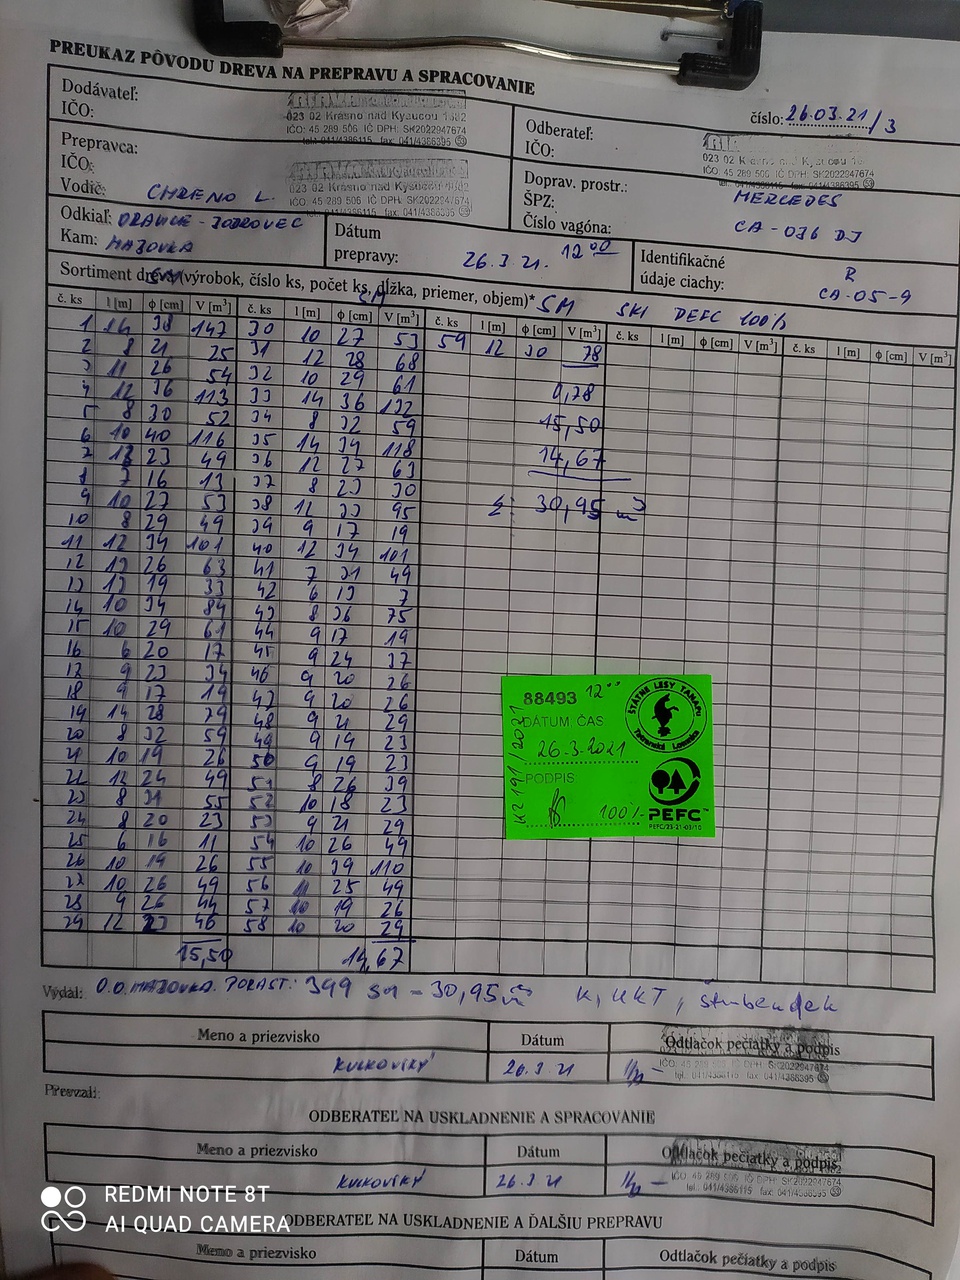 PREUKAZ PÔVODU DREVA NA PREPRAVU A SPRACOVANIE
číslo: 26.03.21/3
Dodávateľ:
IČO:
023 02 Krásno nad Kysucou 1682
IČO: 45 289 506 IČ DPH: SK2022947674
tel.: 041/4386115 fax: 041/4386395
Odberateľ:
IČO:
023 02 Krásno nad Kysucou
IČO: 45 289 506 IČ DPH: SK2022947674
tel.: 041/4386115 fax: 041/4386395
Prepravca:
IČO:
Vodič: CHRENO L.
023 02 Krásno nad Kysucou 1682
IČO: 45 289 506 IČ DPH: SK2022947674
tel.: 041/4386115 fax: 041/4386395
Doprav. prostr.: MERCEDES
ŠPZ:
Číslo vagóna: CA-036 DJ
Odkiaľ: ORAVICE -
Kam: MAJOVKA
Dátum
prepravy: 26.3.21. 12 00
Identifikačné
údaje ciachy: R
CA-05-9
Sortiment dreva (výrobok, číslo ks, počet ks, dĺžka, priemer, objem)* SM PEFC 100%
SM SM
č. ks l [m] ϕ [cm] V [m³] č. ks l [m] ϕ [cm] V [m³] č. ks l [m] ϕ [cm] V [m³] č. ks l [m] ϕ [cm] V [m³] č. ks l [m] ϕ [cm] V [m³]
1 14 38 147 30 10 27 53 59 12 30 78
2 8 21 25 31 12 28 68
3 11 26 54 32 10 29 61 0,78
4 12 36 113 33 14 36 132
5 8 30 52 34 8 32 59 15,50
6 10 40 116 35 14 34 118
7 12 23 49 36 12 27 63 14,67
8 7 16 13 37 8 23 30
9 10 27 53 38 12 33 95 Σ: 30,95 m3
10 8 29 49 39 9 17 19
11 12 34 101 40 12 34 101
12 13 26 63 41 7 31 49
13 13 19 33 42 6 13 7
14 10 34 84 43 8 36 75
15 10 29 61 44 9 17 19
16 6 20 17 45 9 24 37
17 9 23 34 46 9 20 26
18 9 17 19 47 9 20 26
19 14 28 79 48 9 21 29
20 8 32 59 49 9 19 23
21 10 19 26 50 9 19 23
22 12 24 49 51 8 26 39
23 8 31 55 52 10 18 23
24 8 20 23 53 9 21 29
25 6 16 11 54 10 26 49
26 10 19 26 55 10 39 110
27 10 26 49 56 11 25 49
28 9 26 44 57 10 19 26
29 12 23 46 58 10 20 29
15,50 14,67
88493 12 00
DÁTUM, ČAS
26.3.2021
PODPIS
100%
KZ 191/2021
ŠTÁTNE LESY TANAPu
Tatranská Lomnica
PEFC™
PEFC/23-21-03/10
Vydal: O.O. MAJOVKA. PORAST: 399 SM - 30,95 m3 K, UKT,
Meno a priezvisko Dátum Odtlačok pečiatky a podpis
KULKOVSKÝ 26.3.21
IČO: 45 289 506 IČ DPH: SK2022947674
tel.: 041/4386115 fax: 041/4386395
Prevzal:
ODBERATEĽ NA USKLADNENIE A SPRACOVANIE
Meno a priezvisko Dátum Odtlačok pečiatky a podpis
KULKOVSKÝ 26.3.21
IČO: 45 289 506 IČ DPH: SK2022947674
tel.: 041/4386115 fax: 041/4386395
ODBERATEĽ NA USKLADNENIE A ĎALŠIU PREPRAVU
Meno a priezvisko Dátum Odtlačok pečiatky a podpis
REDMI NOTE 8T
AI QUAD CAMERA